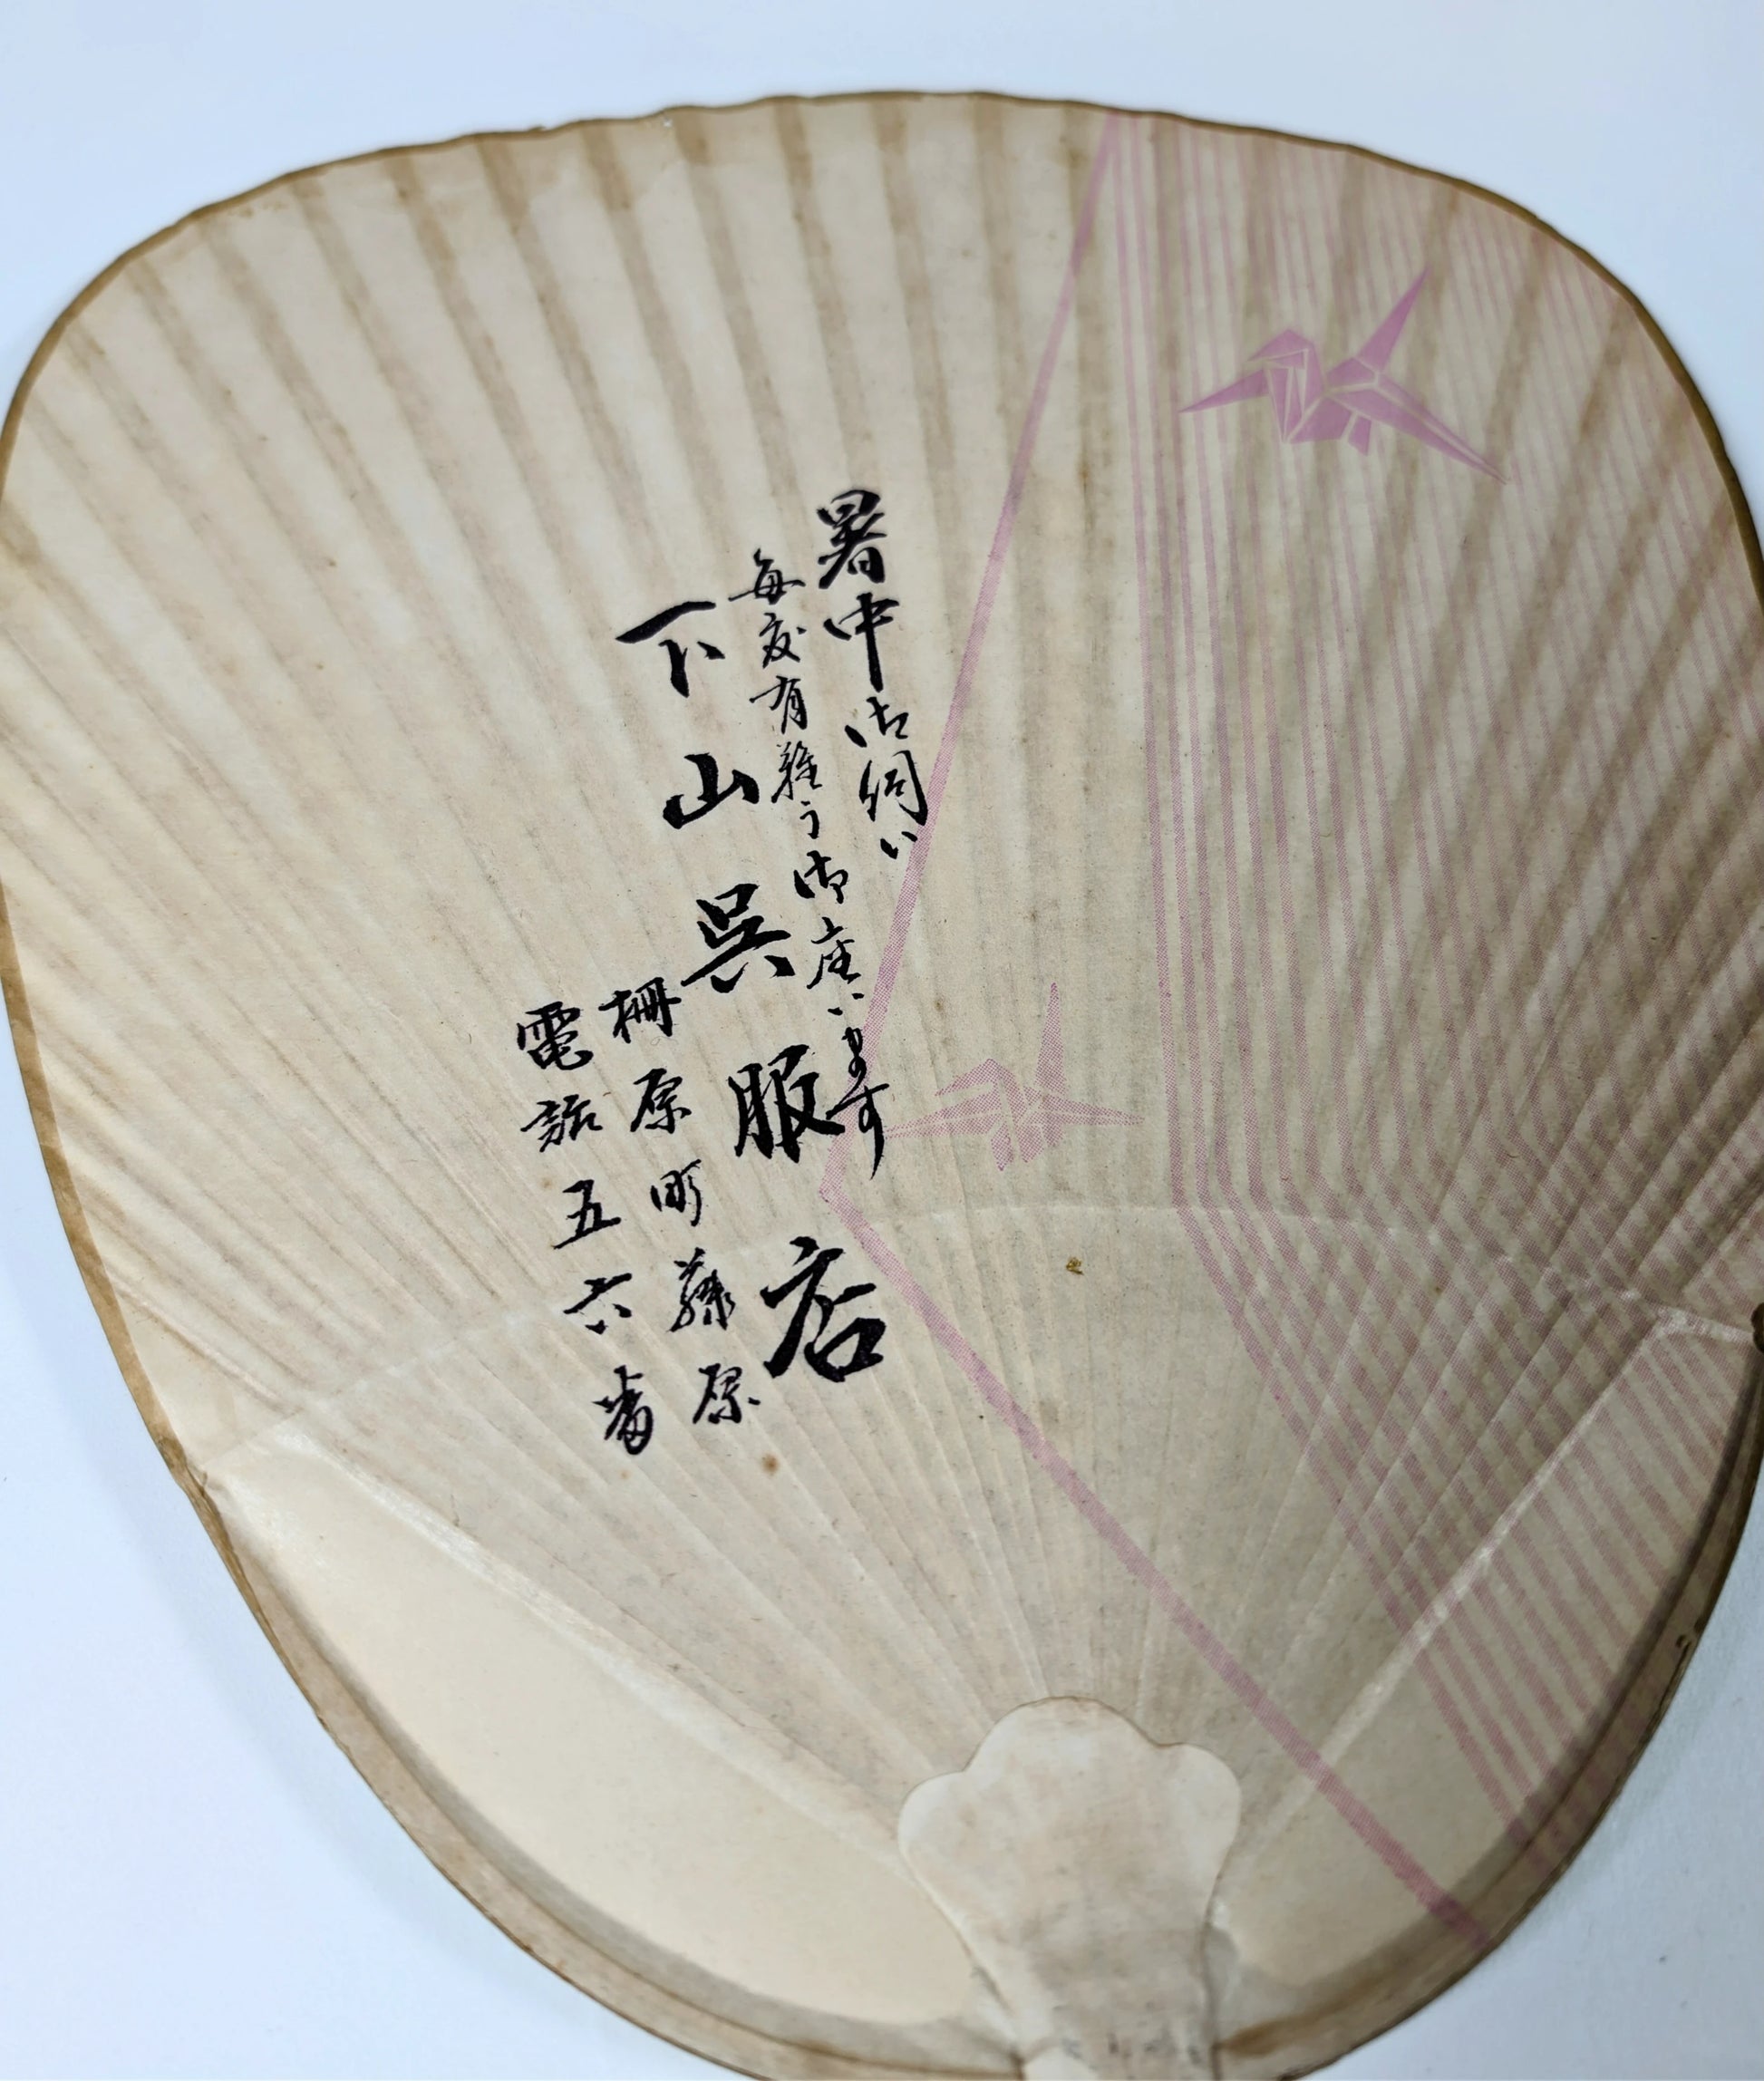 暑中御伺い
毎度有難う御座います
下山呉服店
柵原町藤原
電話五六番